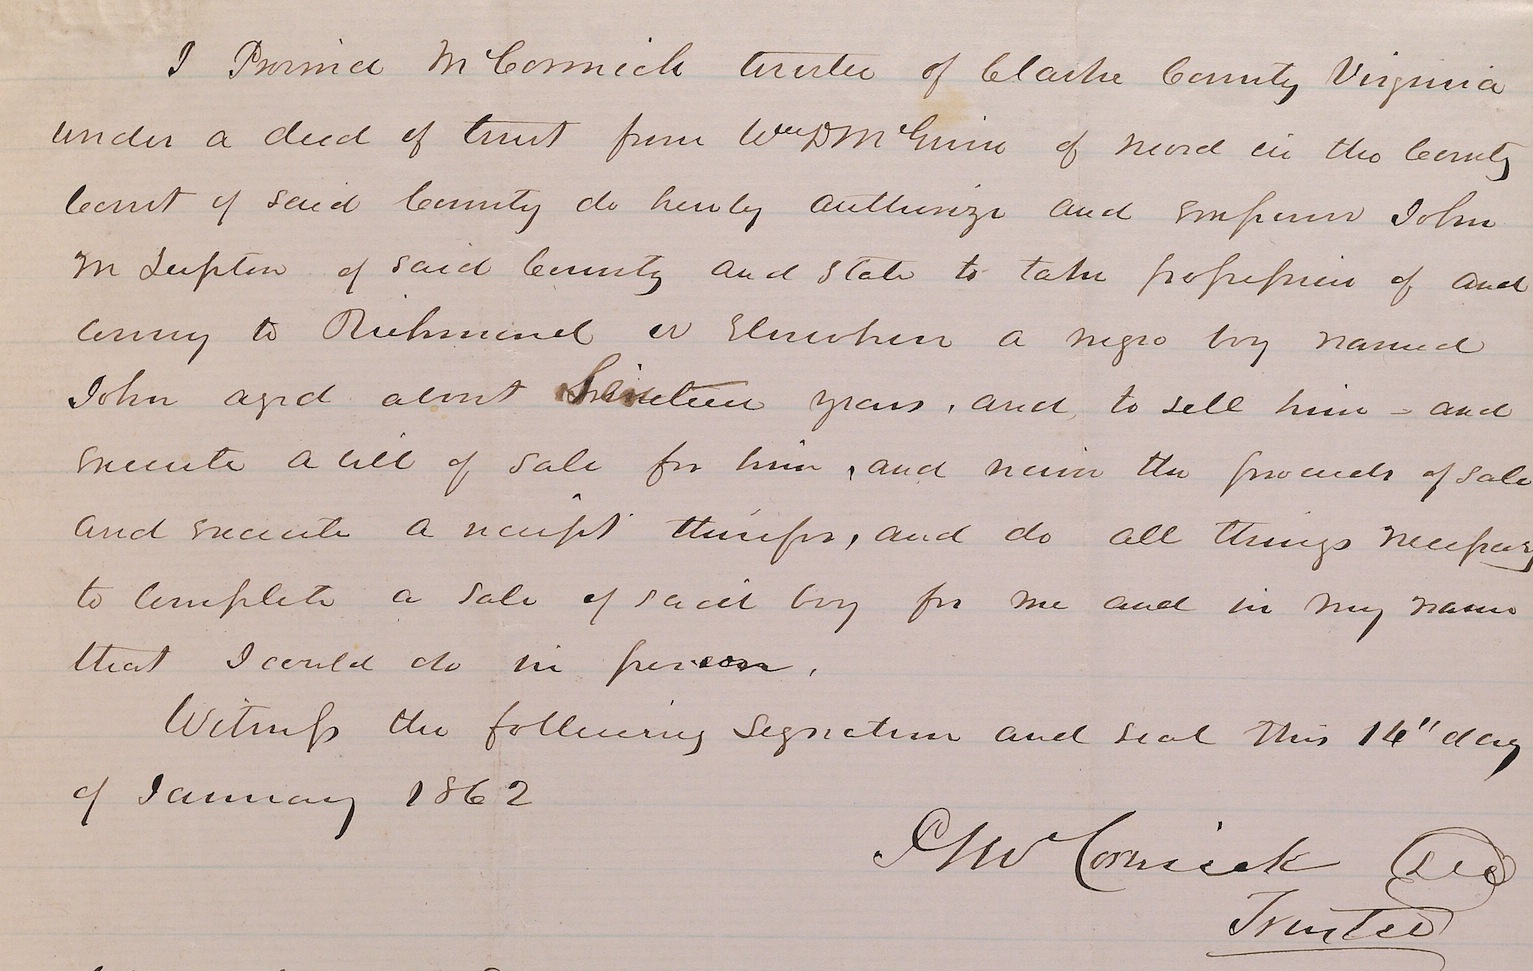 I Provind McCormick trustee of Clarke County Virginia
under a deed of trust from Wm D McGuire of record in the County
Court of said County do hereby authorize and empower John
M Lupton of said County and State to take possession of and
convey to Richmond or Elsewhere a negro boy named
John aged about years, and, to sell him - and
execute a bill of sale for him, and receive the proceeds of sale
and execute a receipt therefor, and do all things necessary
to complete a sale of said boy for me and in my name
that I could do in person.
Witness the following signature and seal this 14" day
of January 1862
P McCormick Seal
Trustee